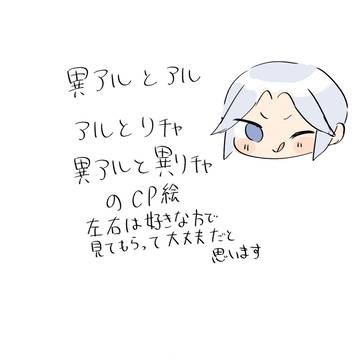 異アルとアル
アルとリチャ
異アルと異リチャ
のCP絵
左右は好きな方で
見てもらって大丈夫だと
思います